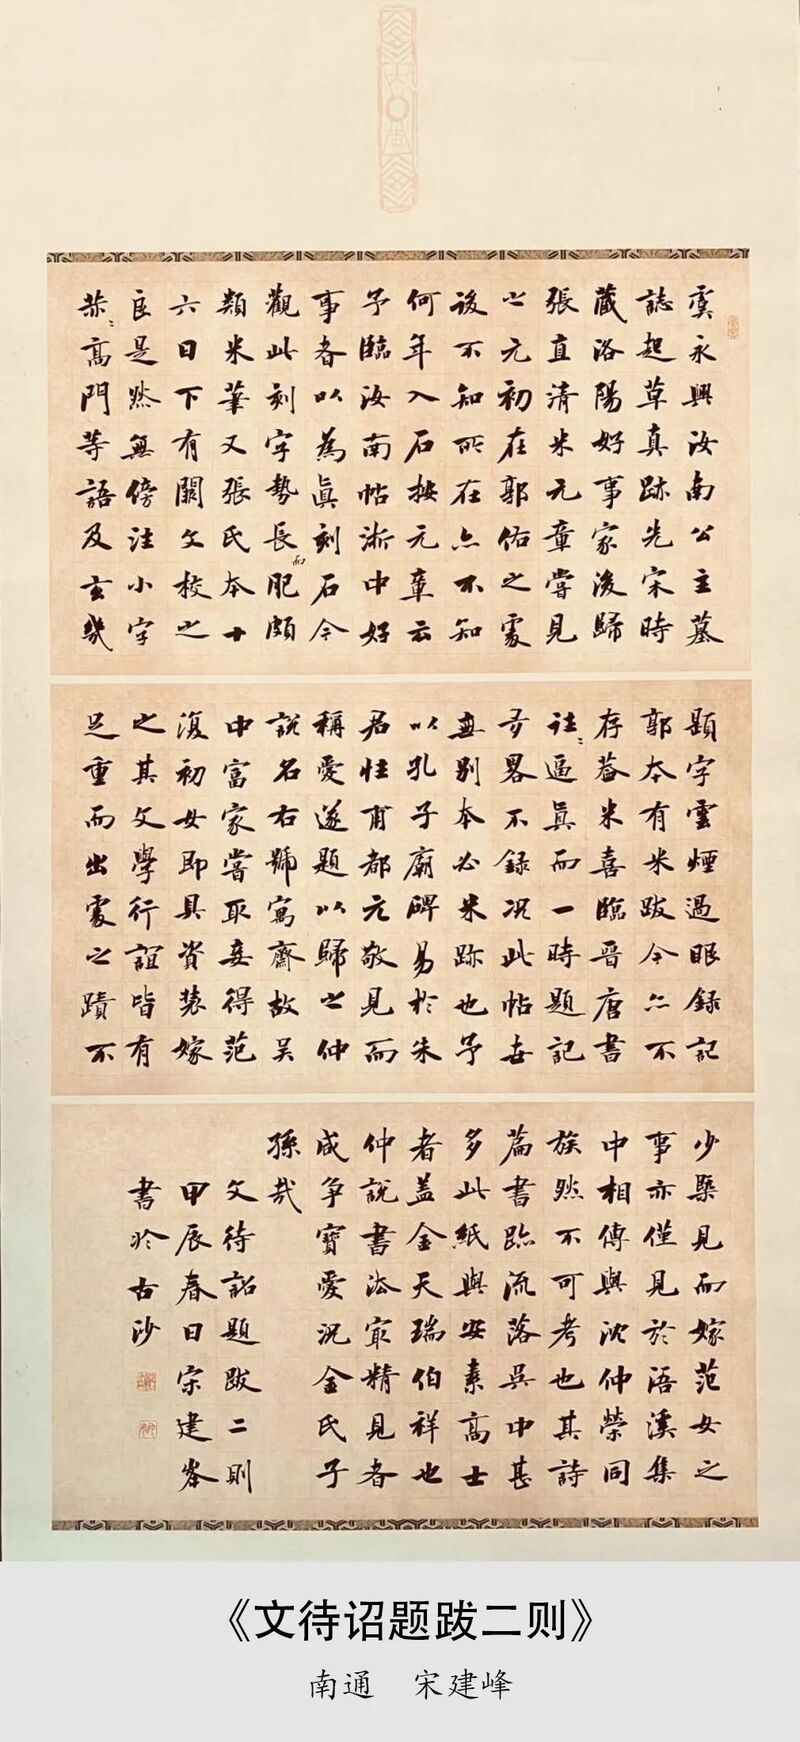 虞永興汝南公主墓
誌起草真跡先宋時
藏洛陽好事家後歸
張直清米元章嘗見
之元初在郭佑之處
後不知所在亦不知
何年入石按元章云
予臨汝南帖浙中好
事者以為真刻石今
觀此刻字勢長而肥頗
類米筆又張氏本十
六日下有闕文校之
良是然無傍注小字
恭：高門等語及玄幾
題字雲煙過眼錄記
郭本有米跋今亦不
存蓋米喜臨晉唐書
往：逼真而一時題記
亦畧不錄況此帖世
無別本必米跡也予
以孔子廟碑易於朱
君性甫都元敬見而
稱愛遂題以歸之仲
說名右號寓齋故吳
中富家嘗取妾得范
復初女即具資裝嫁
之其文學行誼皆有
足重而出處之蹟不
少槩見而嫁范女之
事亦僅見於語溪集
中相傳與沈仲榮同
族然不可考也其詩
篇書跡流落吳中甚
多此紙與安素高士
者蓋金天瑞伯祥也
仲說書法最精見者
咸爭寶愛況金氏子
孫哉
文待詔題跋二則
甲辰春日宋建峯
書於古沙
《文待诏题跋二则》
南通 宋建峰